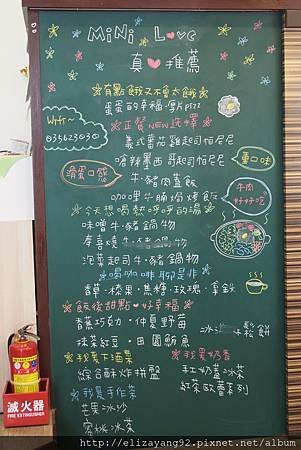 MiNi Love
真♥推薦
有點餓又不會太餓
蛋蛋的幸福厚片pizz
正餐NEW選擇
義式番茄雞起司帕尼尼
嗆辣墨西哥起司帕尼尼
重口味
WiFi~
0356230430
滑蛋口感
牛·豬肉蓋飯
咖哩牛腩焗烤飯
牛肉
好好吃
今天想喝熱呼呼的湯
味噌牛·豬鍋物
壽喜燒牛·豬鍋物
泡菜起司牛·豬鍋物
喝咖啡聊是非
香草·榛果·焦糖·玫瑰·拿鐵
飯後甜點♥好幸福
香蕉巧克力·仲夏野莓
鬆餅
抹茶紅豆·田園鮪魚
我要下酒菜
綜合酥炸拼盤
我要奶香
紅奶蓋冰茶
紅茶歐蕾系列
我要手作茶
芒果冰沙
蜜桃冰茶
滅火器
FIRE EXTINGUISHER
http://elizayang92.pixnet.net/album